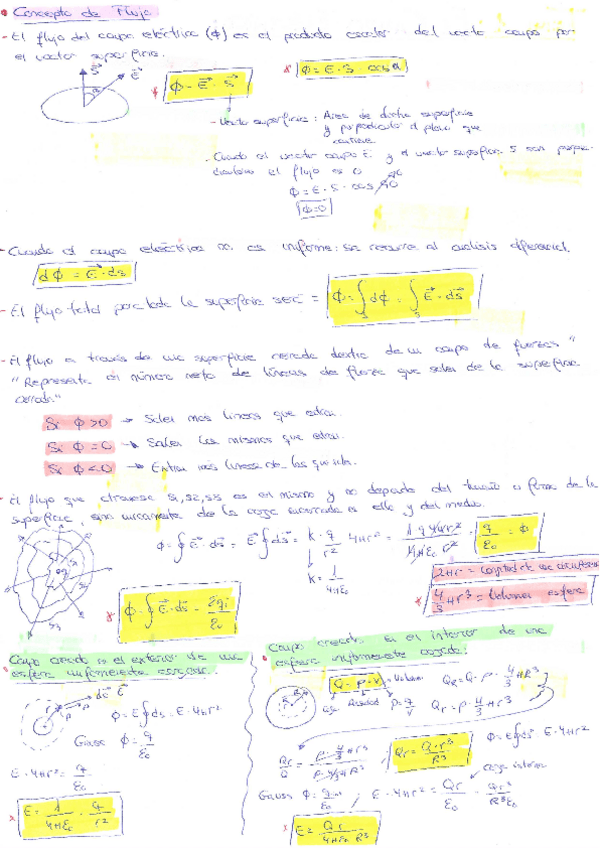 Concepto de Flujo
- El flujo del campo eléctrico (ϕ) es el producto escalar del vector campo por
el vector superficie.
S⃗ E⃗
α
* ϕ = E⃗ · S⃗
* ϕ = E · S · cos α
- Vector superficie: Area de dicha superficie
y perpendicular al plano que
contiene
- Cuando el vector campo E y el vector superficie S son perpen
diculares el flujo es 0
ϕ = E · S · cos 90
ϕ = 0
- Cuando el campo eléctrico no es uniforme: se recurre al análisis diferencial.
dϕ = E⃗ · ds
- El flujo total por toda la superficie será = ϕ = ∫s dϕ = ∫s E⃗ · ds⃗
- El flujo a través de una superficie cerrada dentro de un campo de fuerzas "
"Representa el número neto de líneas de fuerza que salen de la superficie
cerrada"
Si ϕ>0 → Salen más líneas que entran.
Si ϕ=0 → Salen las mismas que entran.
Si ϕ<0 → Entran más líneas de las que salen.
- El flujo que atraviesa S1, S2, S3 es el mismo y no depende del tamaño o forma de la
superficie, sino únicamente de la carga encerrada en ella y del medio.
ϕ = ∮ E⃗ · ds⃗ = E⃗ ∮ ds⃗ = K · q / r² 4πr² = 1 q 4πr² / 4πε₀ r² = q / ε₀ = ϕ
K = 1 / 4πε₀
2πr = Longitud de una circunferencia
* ϕ = ∮ E⃗ · ds⃗ = Σqi / ε₀
* 4/3 πr³ = Volumen esfera
Campo creado en el exterior de una
esfera uniformemente cargada.
ds⃗ E⃗
r P
ϕ = E ∮ ds = E · 4πr²
Gauss ϕ = q / ε₀
E · 4πr² = q / ε₀
* E = 1 / 4πε₀ · q / r²
Campo creado en el interior de una
esfera uniformemente cargada:
Q = ρ · V = Volumen
Carga Densidad ρ = q / V
QR = Q = ρ · 4/3 πR³
Qr = ρ · 4/3 πr³
Qr / Q = ρ · 4/3 πr³ / ρ · 4/3 πR³
Qr = Q · r³ / R³
ϕ = E ∮ ds = E · 4πr²
carga interna
Gauss ϕ = q int / ε₀ ; E · 4πr² = Qr / ε₀ = Qr³ / R³ε₀
* E = Qr / 4πε₀ R³